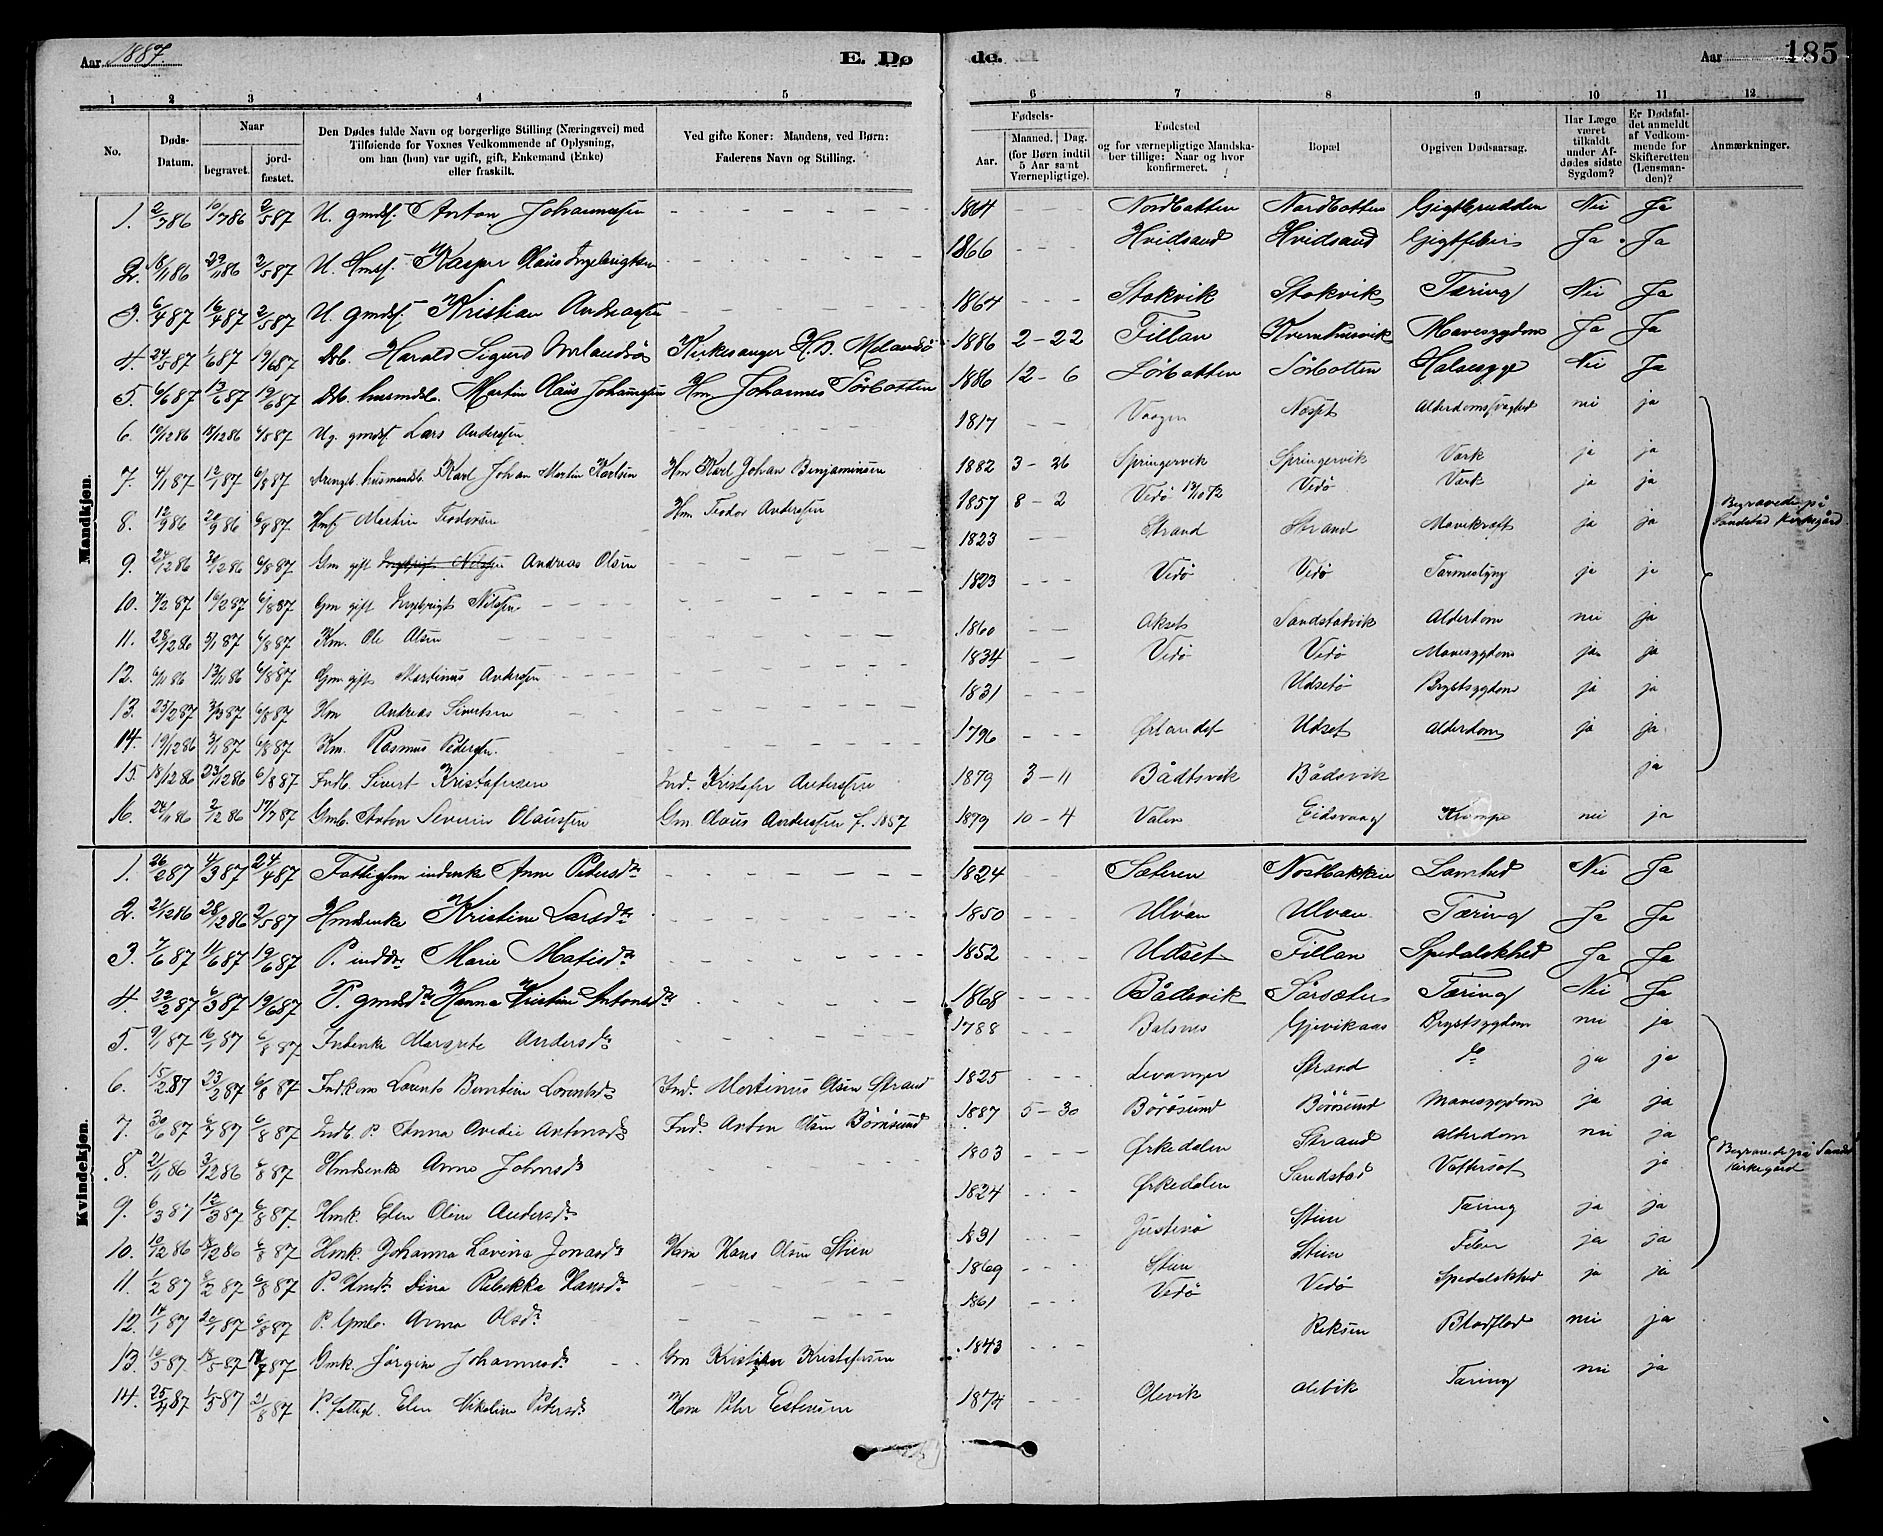 Aar 1887.
E. Dø
de.
Aar
185
1 2 3 4 5 6 7 8 9 10 11 12
No.
Døds-Datum.
Naar
begravet.
jord-fæstet.
Den Dødes fulde Navn og borgerlige Stilling (Næringsvei) med
Tilføiende for Voxnes Vedkommende af Oplysning,
om han (hun) var ugift, gift, Enkemand (Enke)
eller fraskilt.
Ved gifte Koner: Mandens, ved Børn:
Faderens Navn og Stilling.
Fødsels-
Aar.
Maaned. Dag.
(for Børn indtil
5 Aar samt
Værnepligtige).
Fødested
og for værnepligtige Mandska-
ber tillige: Naar og hvor
konfirmeret.
Bopæl
Opgiven Dødsaarsag.
Har Læge
været
tilkaldt
under Af-
dødes sidste
Sygdom?
Er Dødsfal-
det anmeldt
af Vedkom-
mende for
Skifteretten
(Lensman-
den)?
Anmærkninger.
Mandkjøn.
1. 2/7 86 10/7 86 2/5 87 U. gmdsf. Anton Johannessen 1864 Nordbotten Nordbotten Gigtbrudden Nei Ja
2. 18/11 86 29/11 86 2/5 87 U. Hmsf. Kasper Olaus Ingebrigtsen 1866 Hvidsand Hvidsand Gigtfeber Ja Ja
3. 6/4 87 16/4 87 2/5 87 U. gmdsf. Kristian Andreassen 1864 Stokvik Stokvik Tæring Nei Ja
4. 24/5 87 1/6 87 19/6 87 Dsb. Harald Sigurd Melandsø Kirkesanger H. D. Melandsø 1886 2 - 22 Fillan Kvernhusvik Mavesygdom Ja Ja
5. 6/6 87 12/6 87 19/6 87 Dsb. husmdsb. Martin Olaus Johannessen Hm. Johannes Sørbotten 1886 12 - 6 Sørbotten Sørbotten Halssyge Nei Ja
6. 10/12 86 18/12 86 4/5 87 Ug. gmdsf. Lars Anderssen 1817 Vaagen Næsset Alderdomssvaghed nei ja
7. 4/1 87 12/1 87 6/8 87 husmandsb. Karl Johan Martin Karlsen Hm Karl Johan Benjaminsen 1882 3 - 26 Springervik Springervik Værk ja ja
8. 12/9 86 20/9 86 6/8 87 Hmsf Martin Teodorsen Hm Teodor Anderssen 1857 8 - 2 Vedø Vedø Værk ja ja
9. 24/12 86 31/12 86 6/8 87 Gm gift Ingebrigt Nilssen Andreas Olsen 1823 Strand Strand Mavekræft ja ja
10. 7/2 87 16/2 87 6/8 87 Gm gift Ingebrigt Nilssen 1823 Vedø Vedø Tarmeslyng ja ja
11. 28/12 86 5/1 87 6/8 87 Km. Ole Olsen 1860 Akset Sandstadvik Alderdom nei ja
12. 6/11 86 13/11 86 6/8 87 Gm gift Martinus Anderssen 1834 Vedø Vedø Mavesygdom ja ja
13. 23/2 87 3/3 87 6/8 87 Hm Andreas Sivertsen 1831 Udsetø Brystsygdom ja ja
14. 19/12 86 3/1 87 6/8 87 Km. Rasmus Pedersen 1796 Ørlandet Udset Alderdom ja ja
15. 18/12 86 23/12 86 6/8 87 Indb. Sivert Kristofersen Ind. Kristofer Anderssen 1879 3 - 11 Bådtsvik Bådsvik ja
16. 24/11 86 2/12 86 17/7 87 Gmb. Anton Severin Olaussen Gm. Olaus Anderssen f. 1857 1879 10 - 4 Valen Eidsvaag Krampe nei ja
Begravede på
Sandstad Kirkegård
Kvindekjøn.
1. 26/2 87 4/3 87 24/4 87 Fattiglem indenke Anne Petersdr. 1824 Sæteren Nostbakken Lamhed Nei Ja
2. 21/12 86 28/12 86 2/5 87 Hmdsenke Kristine Larsdr. 1850 Ulvan Ulvan Tæring Ja Ja
3. 7/6 87 11/6 87 19/6 87 P. inddr. Marie Matisdr. 1852 Udset Fillan Spedalskhed Ja Ja
4. 22/2 87 6/3 87 19/6 87 P. gmdsdr. Hanna Kristine Antonsdr. 1868 Bådsvik Sørsæter Tæring Nei Ja
5. 9/1 87 16/1 87 6/8 87 Indenke Margrete Andersdr. 1788 Balsnes Gjevikaas Brystsygdom nei ja
6. 15/2 87 23/2 87 6/8 87 Indkone Lorents Berntine Lorentsdr. Ind. Martinus Olsen Strand 1825 Levanger Strand do ja ja
7. 30/6 87 6/7 87 6/8 87 Indb. P. Anna Ovedie Antonsdr. Ind. Anton Olsen Børøsund 1887 5 - 30 Børøsund Børøsund Mavesygdom ja ja
8. 21/11 86 3/12 86 6/8 87 Hmdsenke Anne Johnsdr. 1803 Ørkedalen Strand Alderdom nei ja
9. 6/3 87 12/3 87 6/8 87 Hmk. Elen Oline Andersdr. 1824 Ørkedalen Sandstad Vattersot ja
10. 10/12 86 18/12 86 6/8 87 Hmk. Johanna Lavina Jonasdr. Hm Hans Olsen Stien 1831 Justenø Stien Tæring ja ja
11. 1/2 87 8/2 87 6/8 87 P. Hmdr. Dina Rebekka Hansdr. 1869 Stien Stien Feber ja ja
12. 14/1 87 20/1 87 6/8 87 P. Gmb. Anna Olsdr. 1861 Vedø Vedø Spedalskhed ja ja
13. 10/5 87 18/5 87 17/7 87 Gmk. Jørgine Johannesdr. Gm Kristian Kristofersen 1843 Reksen Blodflod nei ja
14. 25/4 87 1/5 87 21/8 87 P. fattigl. Elen Nikoline Petersdr. Hm Peter Estensen 1874 Olevik Olevik Tæring nei ja
Begravede på Sandst.
Kirkegård